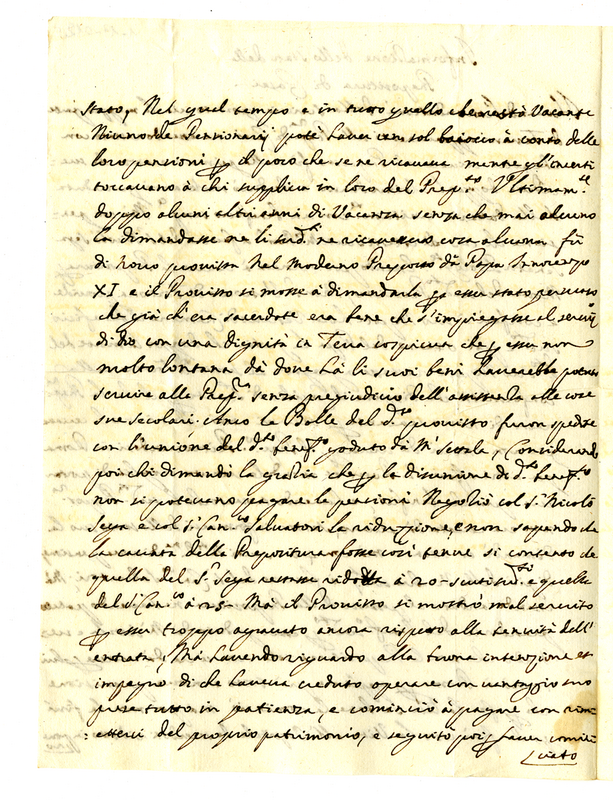 stato, Nel qual tempo e in tutto quello che restò Vacante
Niuno de Pensionarij potè haver un sol baiocco à conto delle
loro pensioni il poco che se ne ricavava mente gl'incerti
toccavano à chi suppliva in loco del Prep.to Vltimam.te
doppo alcuni altri anni di Vacanza senza che mai alcuno
la dimandasse ne li sud.i ne ricavessero cosa alcuna fù
di novo provista nel moderno Preposto dà Papa Innocenzo
XI e il Provisto si mosse à dimandarla essere stato persuaso
che già ch'era sacerdote era bene che s'impiegasse al servi
di dio con una dignità in Terra cospicua che essere non
molto lontana dà dove hà li suoi beni haverebbe potuto
servire alla Prep.ra senza pregiudicio dell'assistenza alle cose
sue secolari. Anco le Bolle del d.to provisto furon spedite
con l'unione del d.to benef.o goduto dà M.r Settala, Considerando
poi chi dimandò la grazia che la disunione di d.to benef.o
non si potevano pagare le pensioni Negoziò col S.r Nicolò
Seya e col S.r Can.co Salvatori la riduzzione, e non sapendo che
la entrata della Prepositura fosse così tenue si contentò che
quella del S.r Seya restasse ridotta à 20 scuti sud.i e quella
del S.r Can.co à 25 - Mà il Provisto si mostrò mal servito
essere troppo agravato ancora rispetto alla tenuità dell'
entrata, Mà havendo riguardo alla buona intenzione et
impegno di che haveva creduto operare con vantaggio suo
prese tutto in patienza, e cominciò à pagare con rim
: ettervi del proprio patrimonio, e seguitò poi haver
ciato